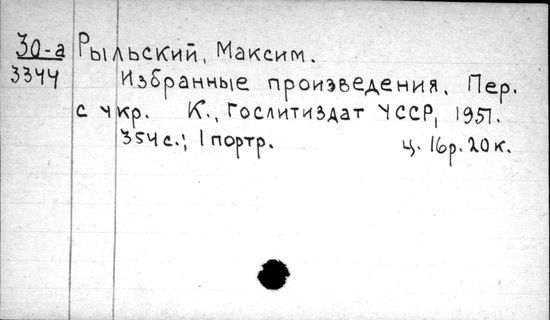 30-а Рыльский, Максим.
3344 Избранные произведения. Пер.
с укр. К., Гослитиздат УССР, 1951.
354 с.; 1 портр. ц. 16р. 20к.